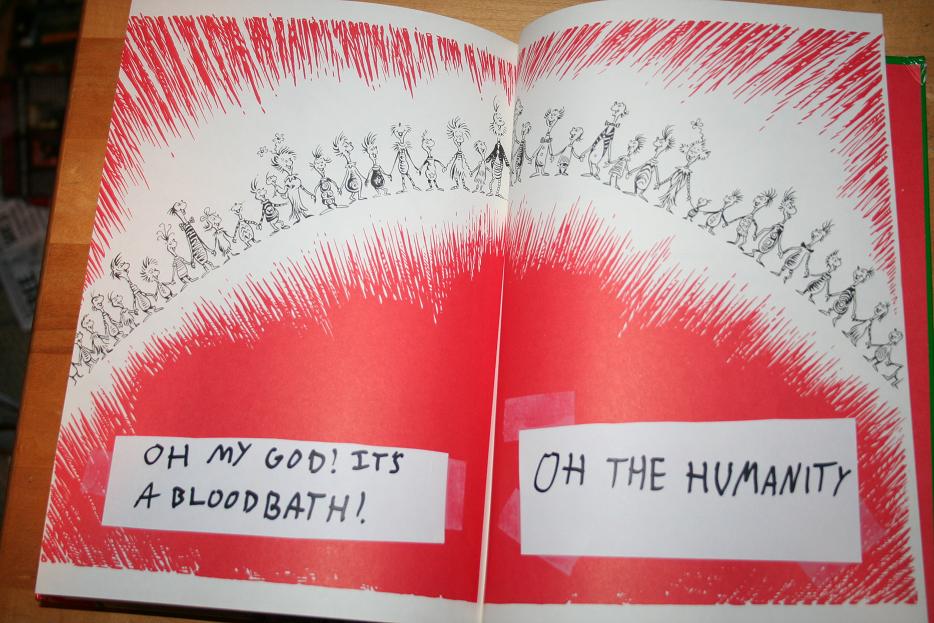 OH MY GOD! ITS
A BLOODBATH!
OH THE HUMANITY